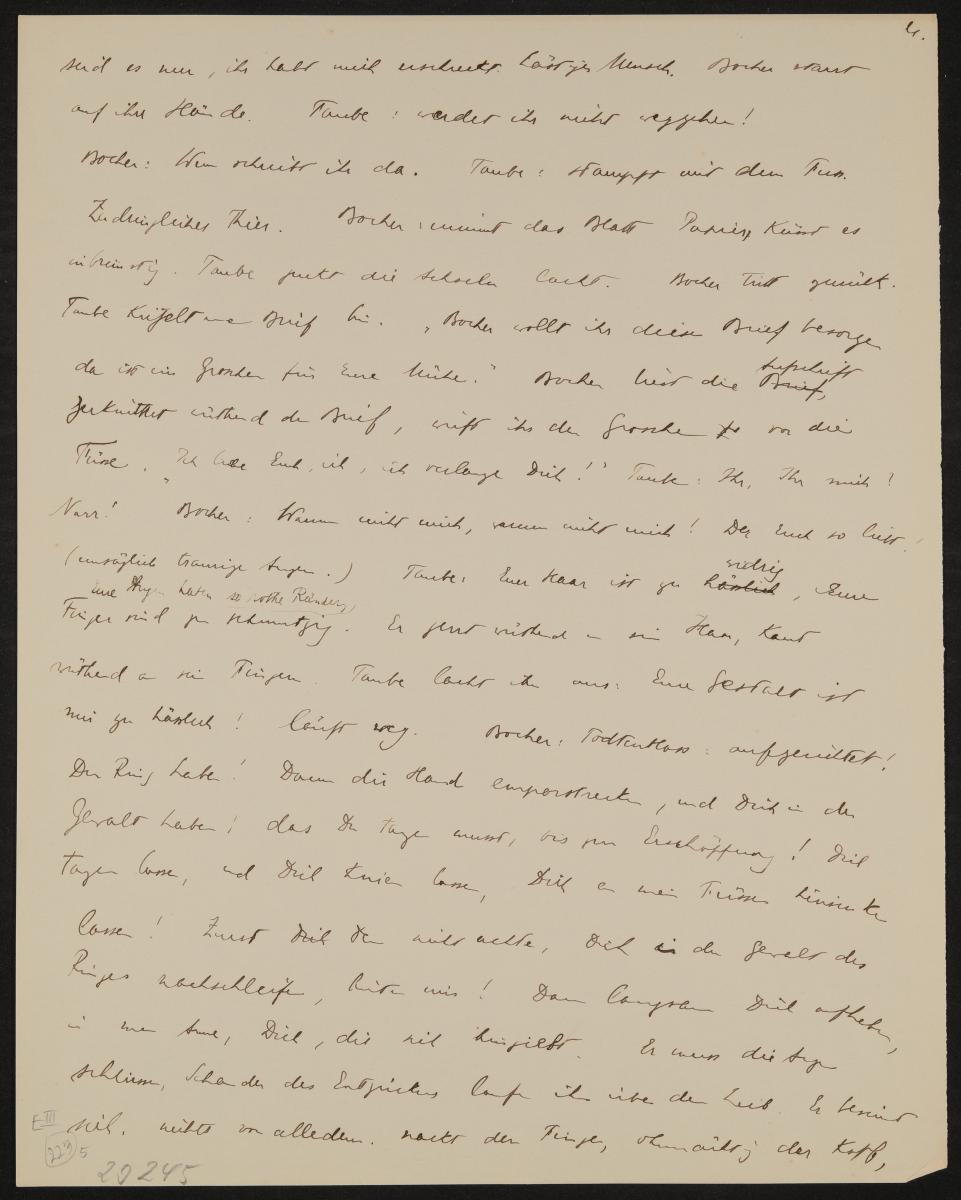 4.
seid es nur, ihr habt mich erschreckt. hässiges Mensch. Bocher starrt
auf ihre Hände. Taube: werdet ihr nicht weggehen!
Bocher: Wem schreibt ihr da. Taube: stampft mit dem Fuss.
Zudringliches Thier. Bocher: nimmt das Blatt Papier, küsst es
inbrünstig. Taube zuckt die Achseln lacht. Bocher tritt zurück.
Taube kritzelt den Brief hin. „Bocher wollt ihr diesen Brief besorgen
da ist ein Groschen für Eure Mühe." Bocher liest die Brief, Aufschrift
zerknittert wüthend den Brief, wirft ihr den Groschen vor die
Füsse. „Ich liebe Euch, ich, ich verlange Dich!" Taube: Ihr, Ihr mich!
Narr! Bocher: Warum nicht mich, warum nicht mich! Der Euch so liebt!
(unsäglich traurige Augen.) Taube: Euer Haar ist zu hässlich widrig, Eure
Eure Augen haben so rothe Ränder,
Finger sind zu schmutzig. Er zerrt wüthend an sein Haar, kaut
wüthend an sein Fingern. Taube lacht ihn aus: Eure Gestalt ist
mir zu hässlich! läuft weg. Bocher: Todtenblass: aufgerüttelt!
Den Ring haben! Dann die Hand emporstrecken, und Dich in der
Gewalt haben! das Du tanzen musst, bis zur Erschöpfung! Dich
tanzen lassen, und Dich knien lassen, Dich an mein Füssen hinsinken
lassen! Zuerst Dich Dein nicht achten, Dich in der Gewalt des
Ringes nachschleifen, hinter mir! Dann langsam Dich aufheben,
in mein Arme, Dich, die sich hingiebt. Er muss die Augen
schliessen, Schauder des Entzückens laufen ihm über den Leib. Er besinnt
sich. nichts von alledem. nackt der Finger, ohnmächtig der Kopf,
E III
223
5
29245